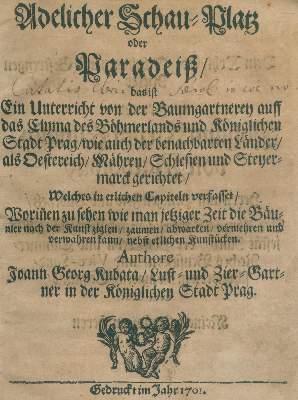 Adelicher Schau-Platz
oder
Paradeiß/
das ist
Ein Unterricht von der Baumgartnerey auff
das Clyma des Böhmerlands und Königlichen
Stadt Prag/ wie auch der benachbarten Länder/
als Oesterreich/ Mähren/ Schlesien und Steyer-
marck gerichtet/
Welches in etlichen Capiteln verfasset/
Woriñen zu sehen wie man jetziger Zeit die Bäu-
mer nach der Kunst ziglen/ zaumen/ abwarten/ vermehren und
verwahren kann/ nebst etlichen Kunstücken.
Authore
Joann Georg Kubata/ Lust- und Zier-Gart-
ner in der Königlichen Stadt Prag.
Gedruckt im Jahr 1701.